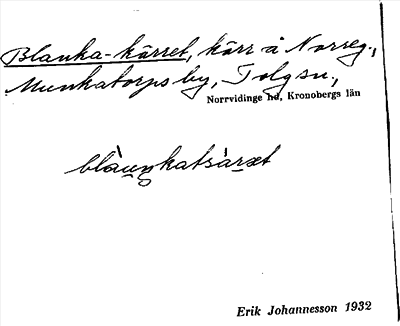 Blanka-kärret, kärr å Norreg.,
Munkatorps by, Tolg sn.,
Norrvidinge hd, Kronobergs län
Erik Johannesson 1932